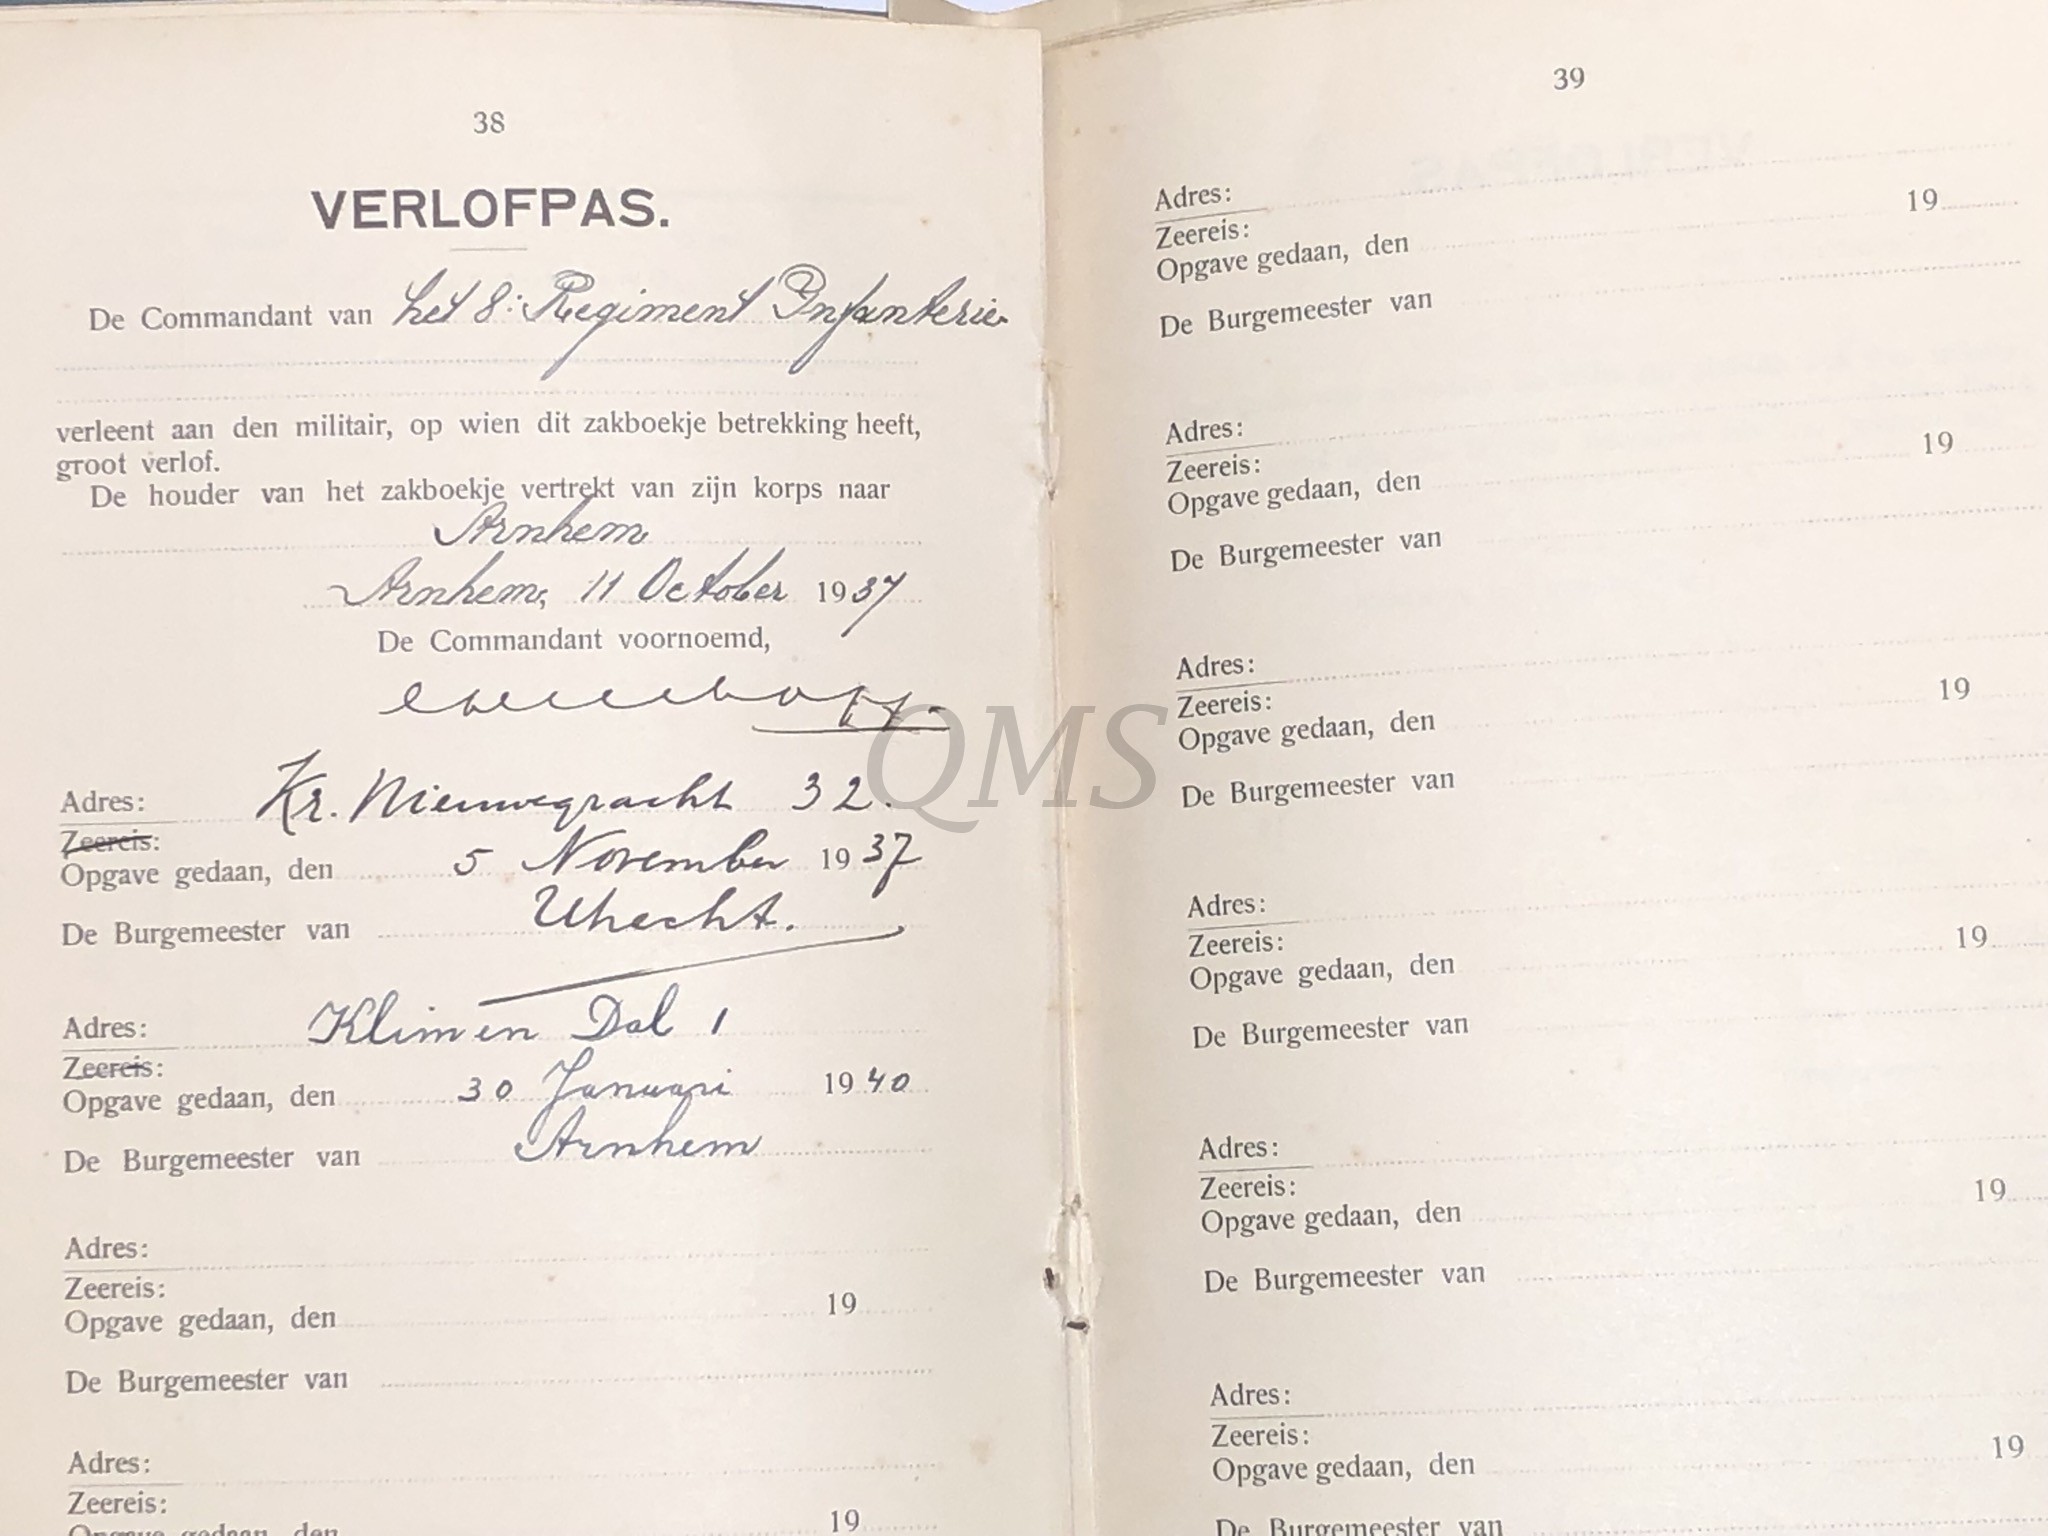 38
VERLOFPAS.
De Commandant van het 8: Regiment Infanterie
verleent aan den militair, op wien dit zakboekje betrekking heeft,
groot verlof.
De houder van het zakboekje vertrekt van zijn korps naar
Arnhem
Arnhem, 11 October 1937
De Commandant voornoemd,
Adres: Kr. Nieuwegracht 32.
Zeereis:
Opgave gedaan, den 5 November 1937
De Burgemeester van Utrecht.
Adres: Klimmen Dal 1
Zeereis:
Opgave gedaan, den 30 Januari 1940
De Burgemeester van Arnhem
Adres:
Zeereis:
Opgave gedaan, den 19
De Burgemeester van
Adres:
Zeereis:
Opgave gedaan, den 19
39
Adres:
Zeereis:
Opgave gedaan, den 19
De Burgemeester van
Adres:
Zeereis:
Opgave gedaan, den 19
De Burgemeester van
Adres:
Zeereis:
Opgave gedaan, den 19
De Burgemeester van
Adres:
Zeereis:
Opgave gedaan, den 19
De Burgemeester van
Adres:
Zeereis:
Opgave gedaan, den 19
De Burgemeester van
Adres:
Zeereis:
Opgave gedaan, den 19
De Burgemeester van
QMS